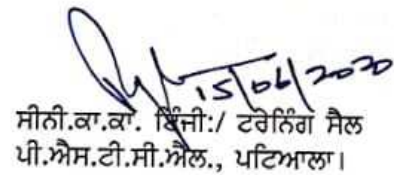 15/06/2020
ਸੀਨੀ.ਕਾ.ਕਾ. ਇੰਜੀ:/ ਟਰੇਨਿੰਗ ਸੈਲ
ਪੀ.ਐਸ.ਟੀ.ਸੀ.ਐਲ., ਪਟਿਆਲਾ।